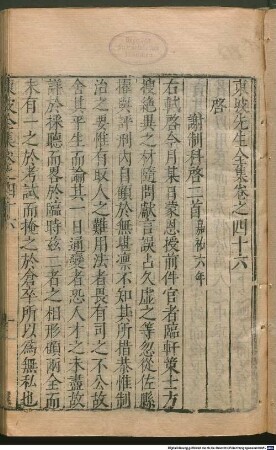 東坡先生全集卷之四十六
啓
謝制科啓二首嘉祐六年
右軾啓今月某日蒙恩授前件官者臨軒策士方
搜絶異之材隨問獻言誤占久虛之等忽從佐縣
擢與評刑內自顧於無堪凛不知其所措恭惟制
治之要惟有取人之難用法者畏有司之不公故
舍其平生而論其一日通變者恐人才之未盡故
詳於採聽而畧於臨時茲二者之相形顧兩全而
未有一之於考試而掩之於倉卒所以爲無私也